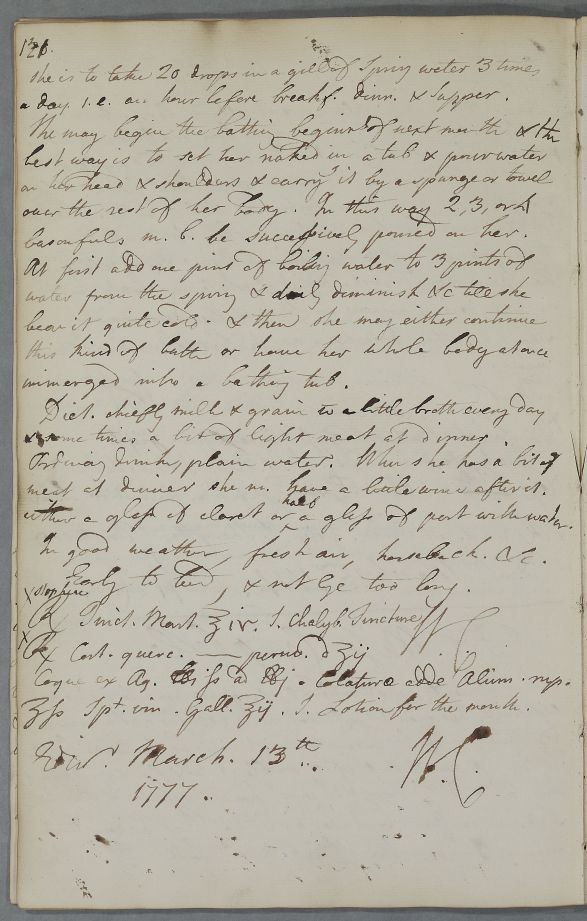 121.
She is to take 20 drops in a gill of Spring water 3 times
a day. i.e. an hour before breakf. dinn. & Supper.
She may begin the bathing beginng of next month & the
best way is to set her naked in a tub & pour water
on her head & shoulders & carry it by a spunge or towel
over the rest of her body. In this way 2, 3, or 4
basonfuls m. b. be successively poured on her.
At first add one pint of boiling water to 3 pints of
water from the spring & daily diminish &c till she
bear it quite cold. & then she may either continue
this kind of bath or have her whole body at once
immerged into a bathing tub.
Diet. chiefly milk & grain a little broth every day
& sometimes a bit of light meat at dinner.
Ordinary drink, plain water. When she has a bit of
meat at dinner she m. have a little wine after it.
either a glass of claret or half a glass of port with water.
In good weather, fresh air, horseback. &c.
Early to bed, & not lye too long.
℞ Tinct. Mart. ℥iv. S. Chalyb. Tincture W C
℞ Cort. querc. — peruv. ā ʒij
Coque ex Aq. ad ℔j. Colaturae adde Alum. rup.
ʒſs Spt. vin. Gall. ʒij. S. Lotion for the mouth.
Edinr. March. 13th.
1777. W. C.